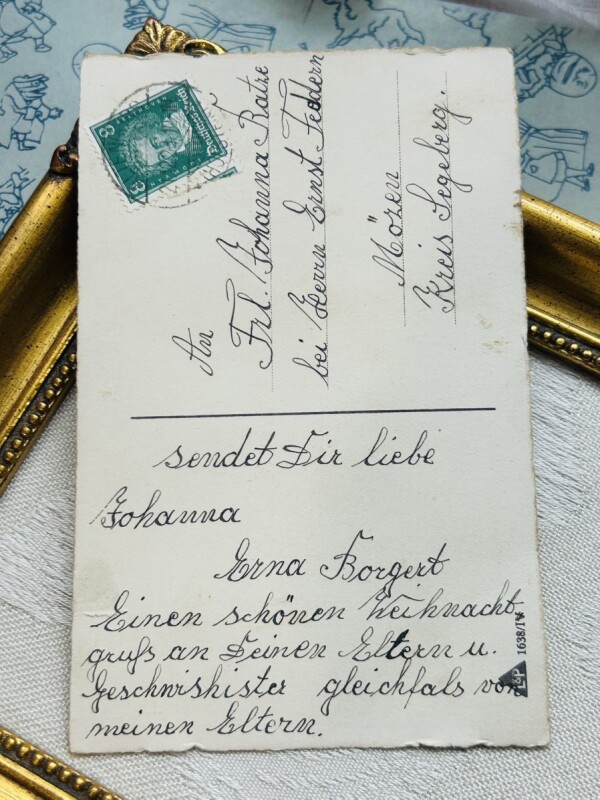 8 Deutsches Reich 8
An
Frl. Johanna Ratze
bei Herrn Ernst Feddern
Mözen
Kreis Segeberg.
sendet Dir liebe
Johanna
Erna Borgert
Einen schönen Weihnacht
gruß an Deinen Eltern u.
Geschwishister gleichfals von
meinen Eltern.
1638/1